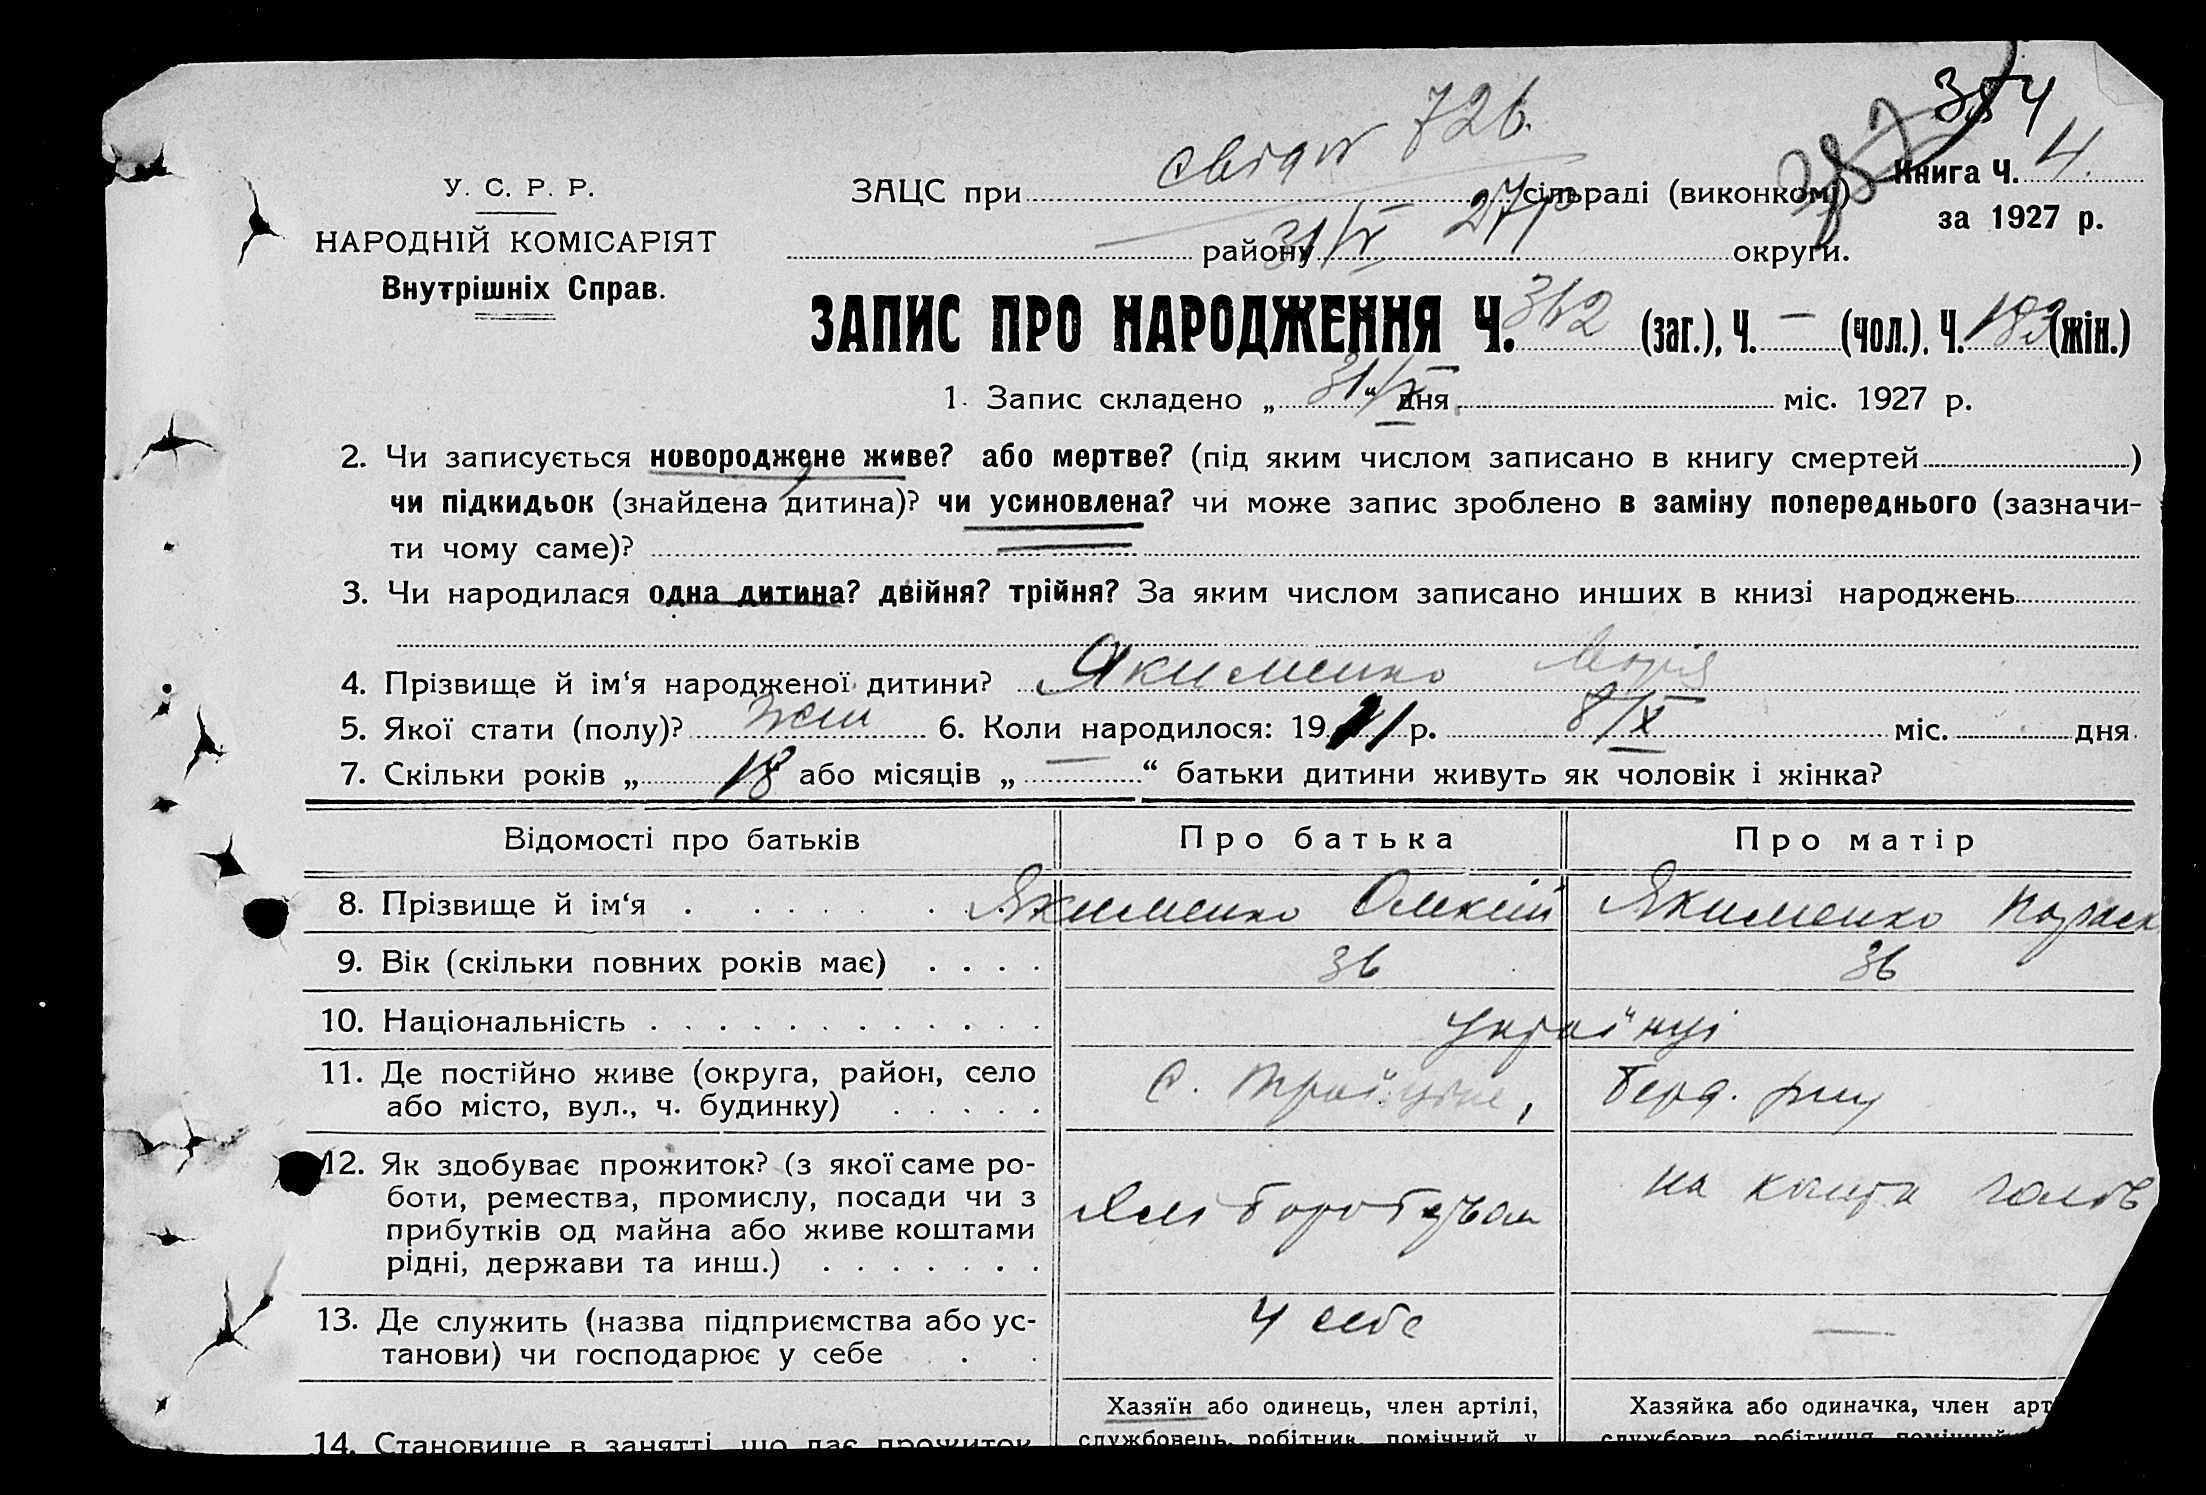 354
свідот 726.
387
У. С. Р. Р.
ЗАЦС при сільраді (виконкомі)
Книга Ч. 4.
НАРОДНІЙ КОМІСАРІЯТ
31/ 27р
за 1927 р.
району округи.
Внутрішніх Справ.
ЗАПИС ПРО НАРОДЖЕННЯ Ч. 362 (заг.), Ч. — (чол.), Ч. 183 (жін.)
1. Запис складено „ 31/X “ дня міс. 1927 р.
2. Чи записується новороджене живе? або мертве? (під яким числом записано в книгу смертей )
чи підкидьок (знайдена дитина)? чи усиновлена? чи може запис зроблено в заміну попереднього (зазначи-
ти чому саме)?
3. Чи народилася одна дитина? двійня? трійня? За яким числом записано инших в книзі народжень
4. Прізвище й ім‘я народженої дитини? Якименко Марія
5. Якої стати (полу)? жін 6. Коли народилося: 19 р. 8/X міс. дня
7. Скільки років „ 18 або місяців „ — “ батьки дитини живуть як чоловік і жінка?
Відомості про батьків Про батька Про матір
8. Прізвище й ім‘я . . . . . . Якименко Олексій Якименко Параск
9. Вік (скільки повних років має) . . . . 36 36
10. Національність . . . . . . . . . . . . українці
11. Де постійно живе (округа, район, село
або місто, вул., ч. будинку) . . . . . с. Троїцьке, Берд. рну
12. Як здобуває прожиток? (з якої саме ро-
боти, ремества, промислу, посади чи з
прибутків од майна або живе коштами
рідні, держави та инш.) . . . . . . .
хліборобством
на кошта голов
13. Де служить (назва підприємства або ус-
танови) чи господарює у себе . .
У себе —
Хазяїн або одинець, член артілі,
Хазяйка або одиначка, член арт
14. Становище в занятті, що дає прожиток
службовець, робітник, помічний у
службовка, робітниця, помічний